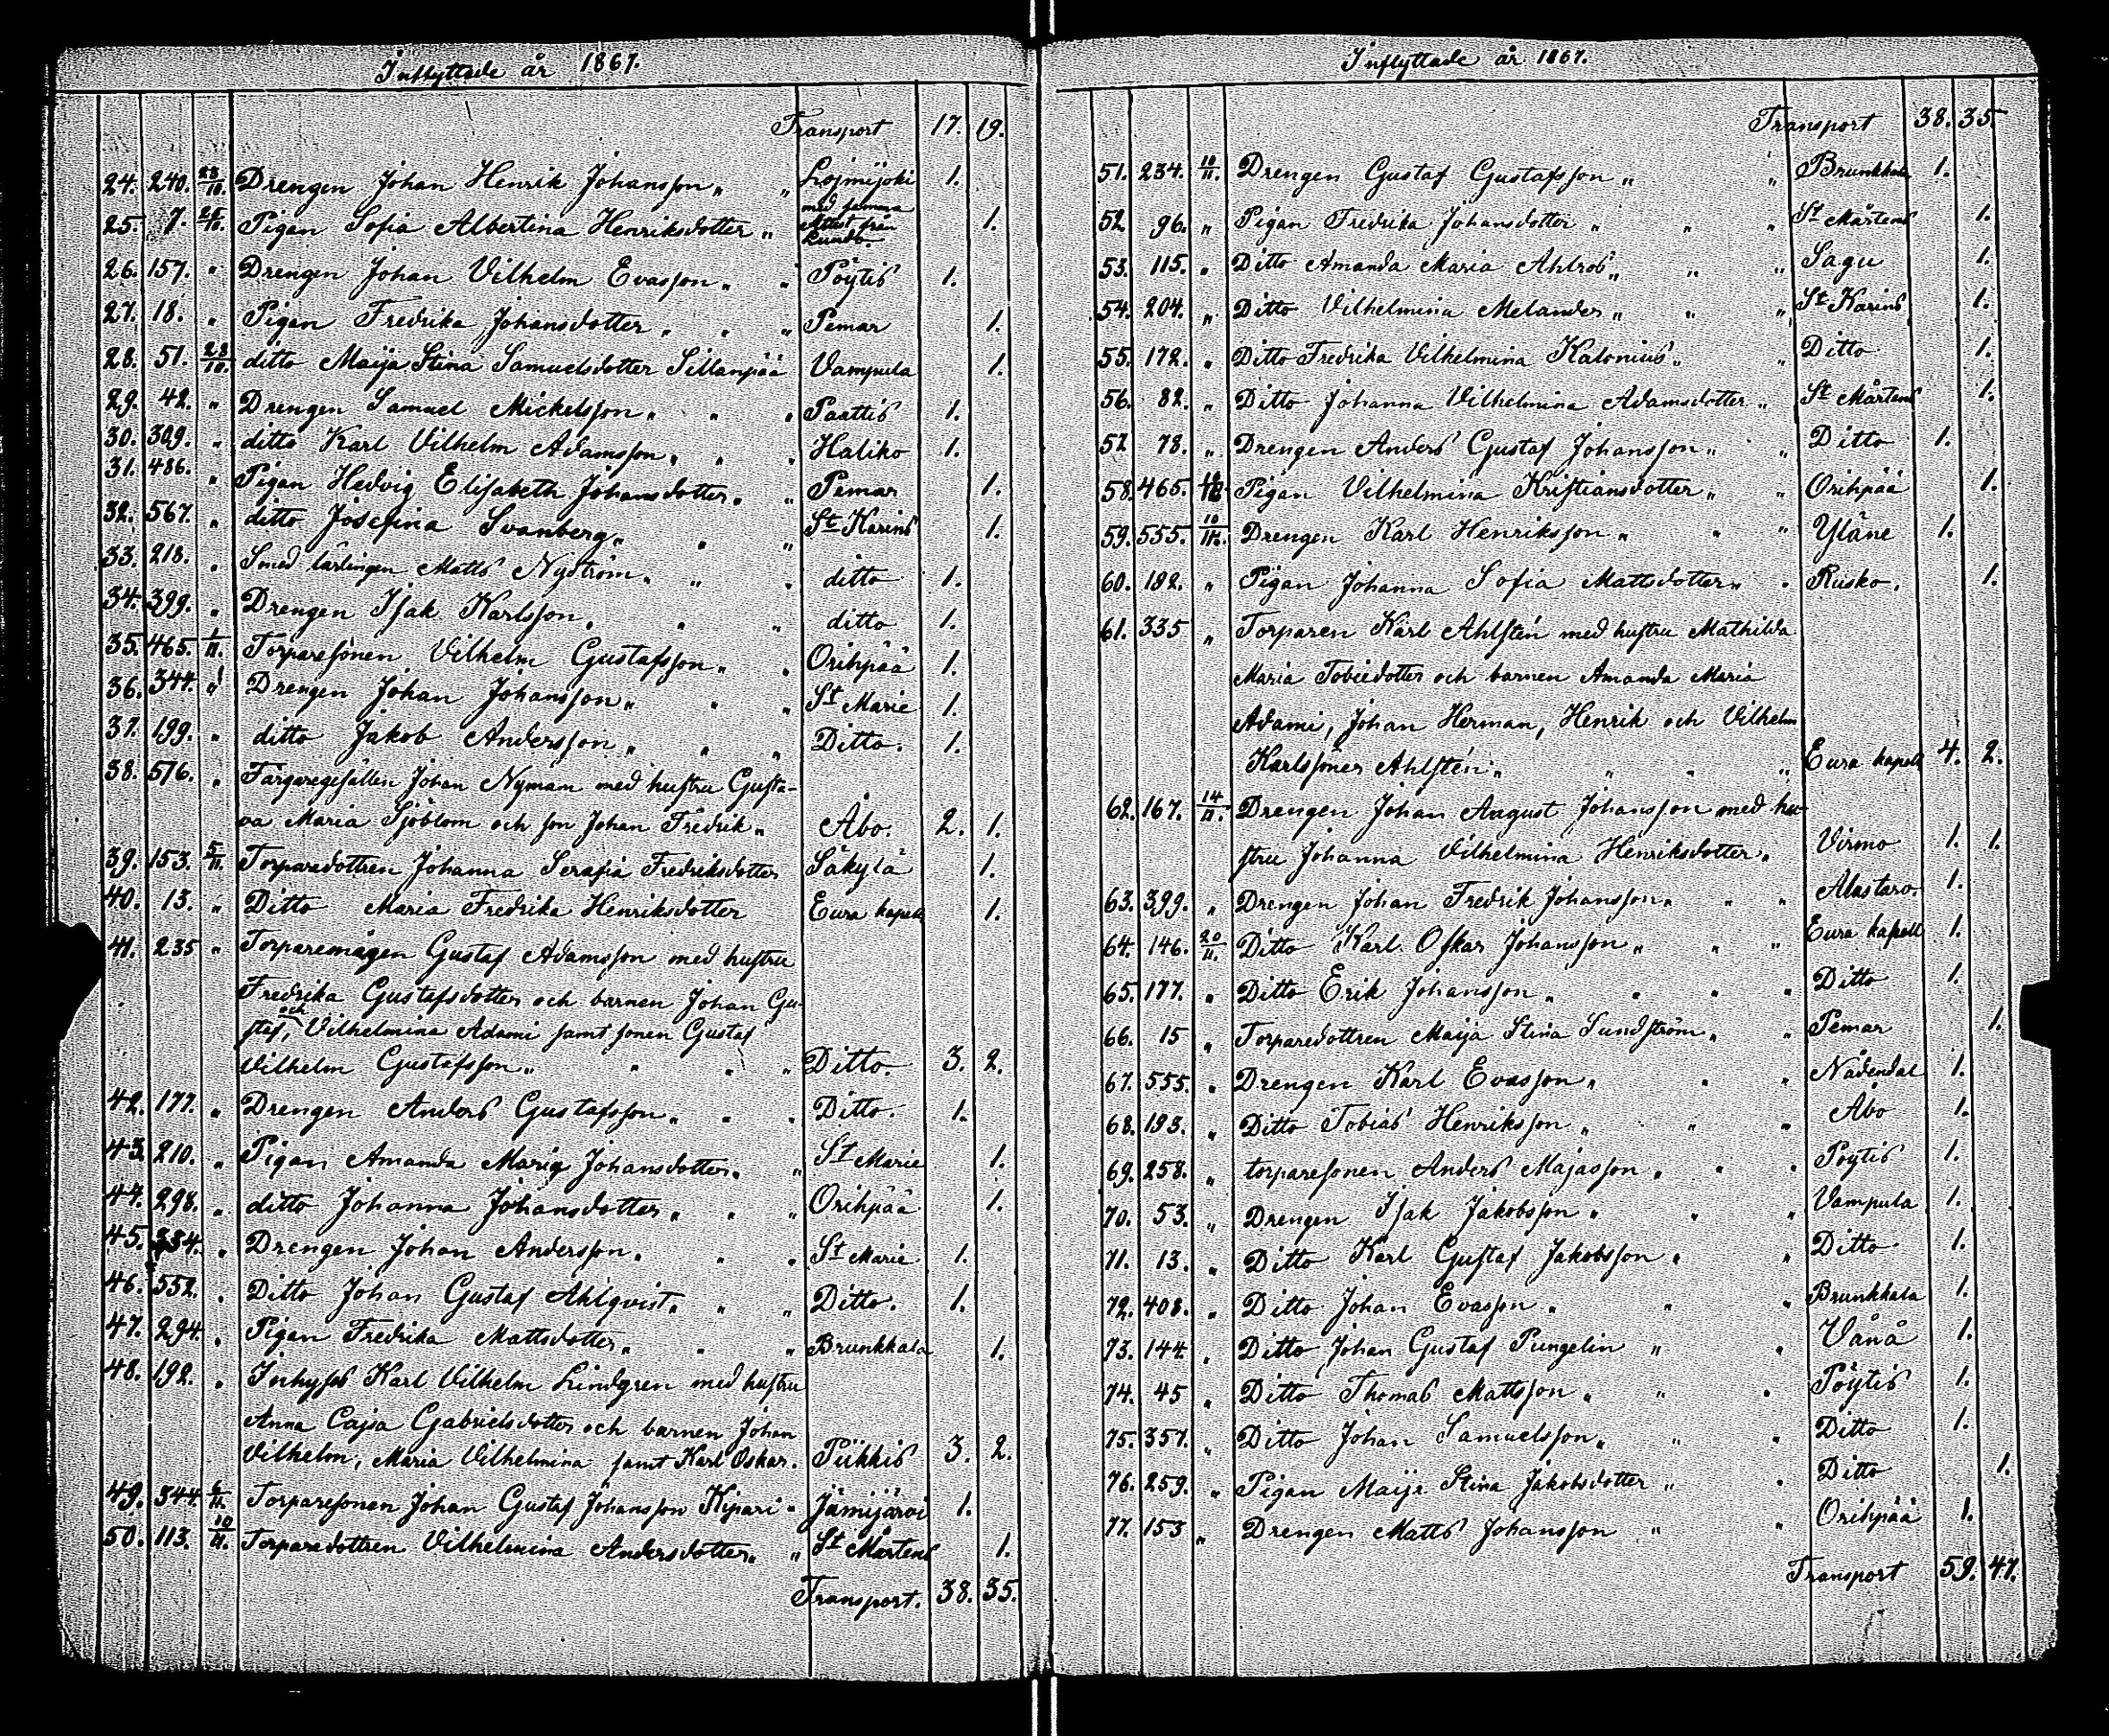 Inflyttade år 1867.
Transport 17. 19.
24. 240. 23/10. Drengen Johan Henrik Johansson „ „ Loimijoki 1.
25. 7. 25/10. Pigan Sofia Albertina Henriksdotter „ med samma Attest från Kumo. 1.
26. 157. „ Drengen Johan Vilhelm Evasson „ „ Pöytis 1.
27. 18. „ Pigan Fredrika Johansdotter „ „ „ Pemar 1.
28. 51. 28/10. ditto Maija Stina Samuelsdotter Sillanpää Vampula 1.
29. 42. „ Drengen Samuel Mickelsson „ „ „ Paattis 1.
30. 309. „ ditto Karl Vilhelm Adamsson „ „ „ Haliko 1.
31. 486. „ Pigan Hedvig Elisabeth Johansdotter „ „ Pemar 1.
32. 567. „ ditto Josefina Svanberg „ „ „ St Karins 1.
33. 218. „ Smed lärlingen Matts Nyström „ „ „ ditto 1.
34. 399. „ Drengen Isak Karlsson „ „ „ ditto 1.
35. 465. 1/11. Torparesonen Vilhelm Gustafsson „ „ Orihpää 1.
36. 344. „ Drengen Johan Johansson „ „ „ St Marie 1.
37. 199. „ ditto Jakob Andersson „ „ „ Ditto. 1.
38. 576. „ Färgaregesällen Johan Nyman med hustru Gusta-
va Maria Sjöblom och son Johan Fredrik „ Åbo. 2. 1.
39. 153. 5/11. Torparedottren Johanna Serafia Fredriksdotter Säkylä 1.
40. 13. „ Ditto Maria Fredrika Henriksdotter Eura kapell 1.
41. 235 „ Torparemågen Gustaf Adamsson med hustru
Fredrika Gustafsdotter och barnen Johan Gu-
staf, och Vilhelmina Adami samt sonen Gustaf
Vilhelm Gustafsson „ „ „ „ Ditto. 3. 2.
42. 177. „ Drengen Anders Gustafsson „ „ „ Ditto. 1.
43. 210. „ Pigan Amanda Maria Johansdotter „ „ St Marie 1.
44. 298. „ ditto Johanna Johansdotter „ „ „ Orihpää 1.
45. 334. „ Drengen Johan Andersson „ „ „ St Marie 1.
46. 552. „ Ditto Johan Gustaf Ahlqvist „ „ „ Ditto. 1.
47. 294. „ Pigan Fredrika Mattsdotter „ „ „ Brunkkala 1.
48. 192. „ Inhyses Karl Vilhelm Lindgren med hustru
Anna Cajsa Gabrielsdotter och barnen Johan
Vilhelm, Maria Vilhelmina samt Karl Oskar. Piikkis 3. 2.
49. 344. 6/11. Torparesonen Johan Gustaf Johansson Kipari „ Jämijärvi 1.
50. 113. 10/11. Torparedottren Vilhelmina Andersdotter „ „ St Mårtens 1.
Transport. 38. 35.
Inflyttade år 1867.
Transport 38. 35.
51. 234. 10/11. Drengen Gustaf Gustafsson „ „ Brunkkala 1.
52. 96. „ Pigan Fredrika Johansdotter „ „ „ St Mårtens 1.
53. 115. „ Ditto Amanda Maria Ahlros „ „ „ Sagu 1.
54. 204. „ Ditto Vilhelmina Melander „ „ „ St Karins 1.
55. 172. „ Ditto Fredrika Vilhelmina Kalonius „ „ Ditto 1.
56. 82. „ Ditto Johanna Vilhelmina Adamsdotter „ St Mårtens 1.
57. 78. „ Drengen Anders Gustaf Johansson „ „ Ditto 1.
58. 465. Pigan Vilhelmina Kristiansdotter „ „ Orihpää 1.
59. 555. 10/11. Drengen Karl Henriksson „ „ „ Yläne 1.
60. 192. „ Pigan Johanna Sofia Mattsdotter „ „ Rusko. 1.
61. 335 „ Torparen Karl Ahlstén med hustru Mathilda
Maria Tobiedotter och barnen Amanda Maria
Adami, Johan Herman, Henrik och Vilhelm
Karlssöner Ahlstén „ „ „ „ Eura kapell 4. 2.
62. 167. 14/11. Drengen Johan August Johansson med hu-
stru Johanna Vilhelmina Henriksdotter „ Virmo 1. 1.
63. 399. „ Drengen Johan Fredrik Johansson „ „ „ Alastaro 1.
64. 146. 20/11. Ditto Karl Oskar Johansson „ „ „ Eura kapell 1.
65. 177. „ Ditto Erik Johansson „ „ „ „ Ditto 1.
66. 15 „ Torparedottren Maija Stina Sundström „ „ Pemar 1.
67. 555. „ Drengen Karl Evasson „ „ „ Nådendal 1.
68. 193. „ Ditto Tobias Henriksson „ „ „ Åbo 1.
69. 258. „ torparesonen Anders Majasson „ „ „ Pöytis 1.
70. 53. „ Drengen Isak Jakobsson „ „ „ Vampula 1.
71. 13. „ Ditto Karl Gustaf Jakobsson „ „ Ditto 1.
72. 408. „ Ditto Johan Evasson „ „ „ Brunkkala 1.
73. 144. „ Ditto Johan Gustaf Pungelin „ „ Vånå 1.
74. 45 „ Ditto Thomas Mattsson „ „ „ Pöytis 1.
75. 357. „ Ditto Johan Samuelsson „ „ „ Ditto 1.
76. 259. „ Pigan Maija Stina Jakobsdotter „ „ Ditto 1.
77. 153 „ Drengen Matts Johansson „ „ Orihpää 1.
Transport 59. 47.